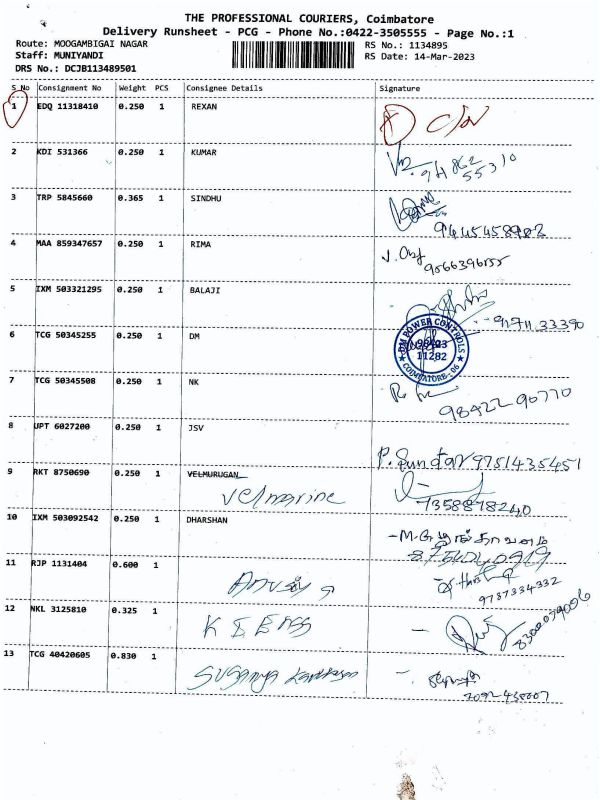 THE PROFESSIONAL COURIERS, Coimbatore
Delivery Runsheet - PCG - Phone No.:0422-3505555 - Page No.:1
Route: MOOGAMBIGAI NAGAR
RS No.: 1134895
Staff: MUNIYANDI
RS Date: 14-Mar-2023
DRS No.: DCJB113489501
S No Consignment No Weight PCS Consignee Details Signature
1 EDQ 11318410 0.250 1 REXAN
2 KDI 531366 0.250 1 KUMAR
55310
3 TRP 5845660 0.365 1 SINDHU
9445458902
4 MAA 859347657 0.250 1 RIMA
9566396155
5 IXM 503321295 0.250 1 BALAJI
6 TCG 50345255 0.250 1 DM
DM POWER CONTROLS
11282
COIMBATORE - 06
7 TCG 50345508 0.250 1 NK
98422 90770
8 UPT 6027200 0.250 1 JSV
P. Sundar 9751435451
9 RKT 8750690 0.250 1 VELMURUGAN
Velmarine
7358878240
10 IXM 503092542 0.250 1 DHARSHAN
11 RJP 1131404 0.600 1
9737334332
12 NKL 3125810 0.325 1
8300079096
13 TCG 40420605 0.830 1
Suganya